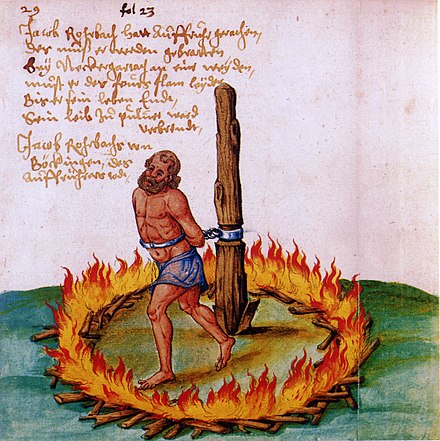 29 fol 23
Jacob Rohrbach hatt Auffruhr gerathen,
der muß er werden gebratten
Bey Neckergartach an ein weyden,
muß er des feurs flam leyden
Biß er sein leben Endt,
Sein leib zu pulver ward
verbrendt,
Jacob Rohrbachs von
Böckingen, des
Auffrührers tod.